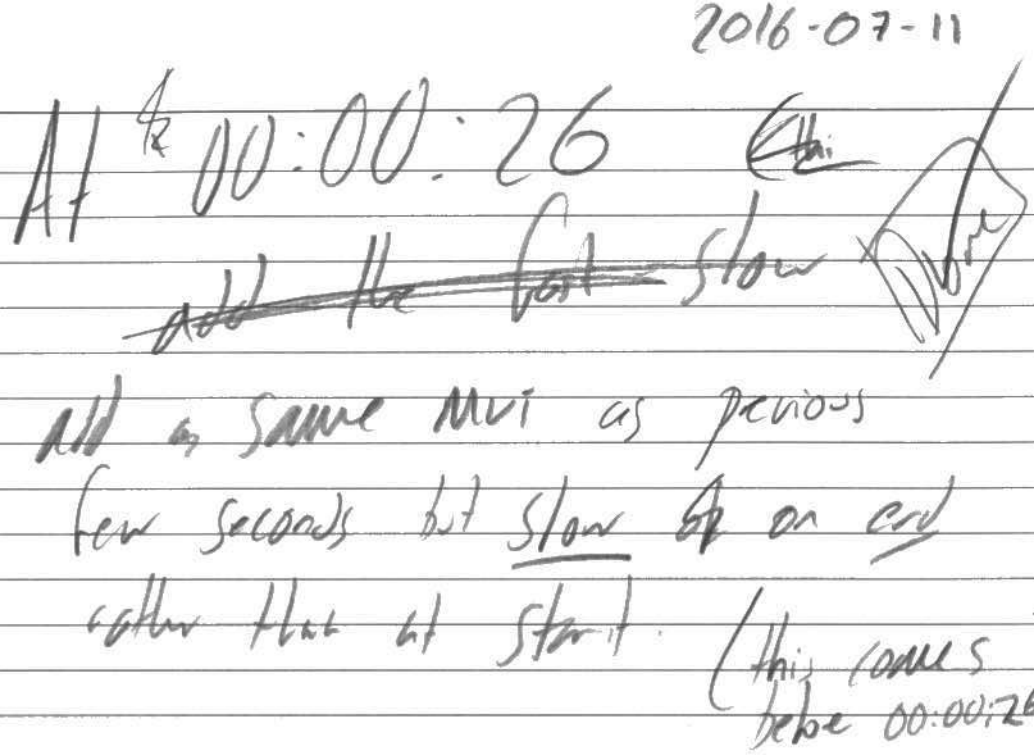 2016-07-11
At 00:00:26
Done
add the fast slow
add as same MVI as pervious
few seconds but slow on end
rather than at start.
(this comes
before 00:00:26